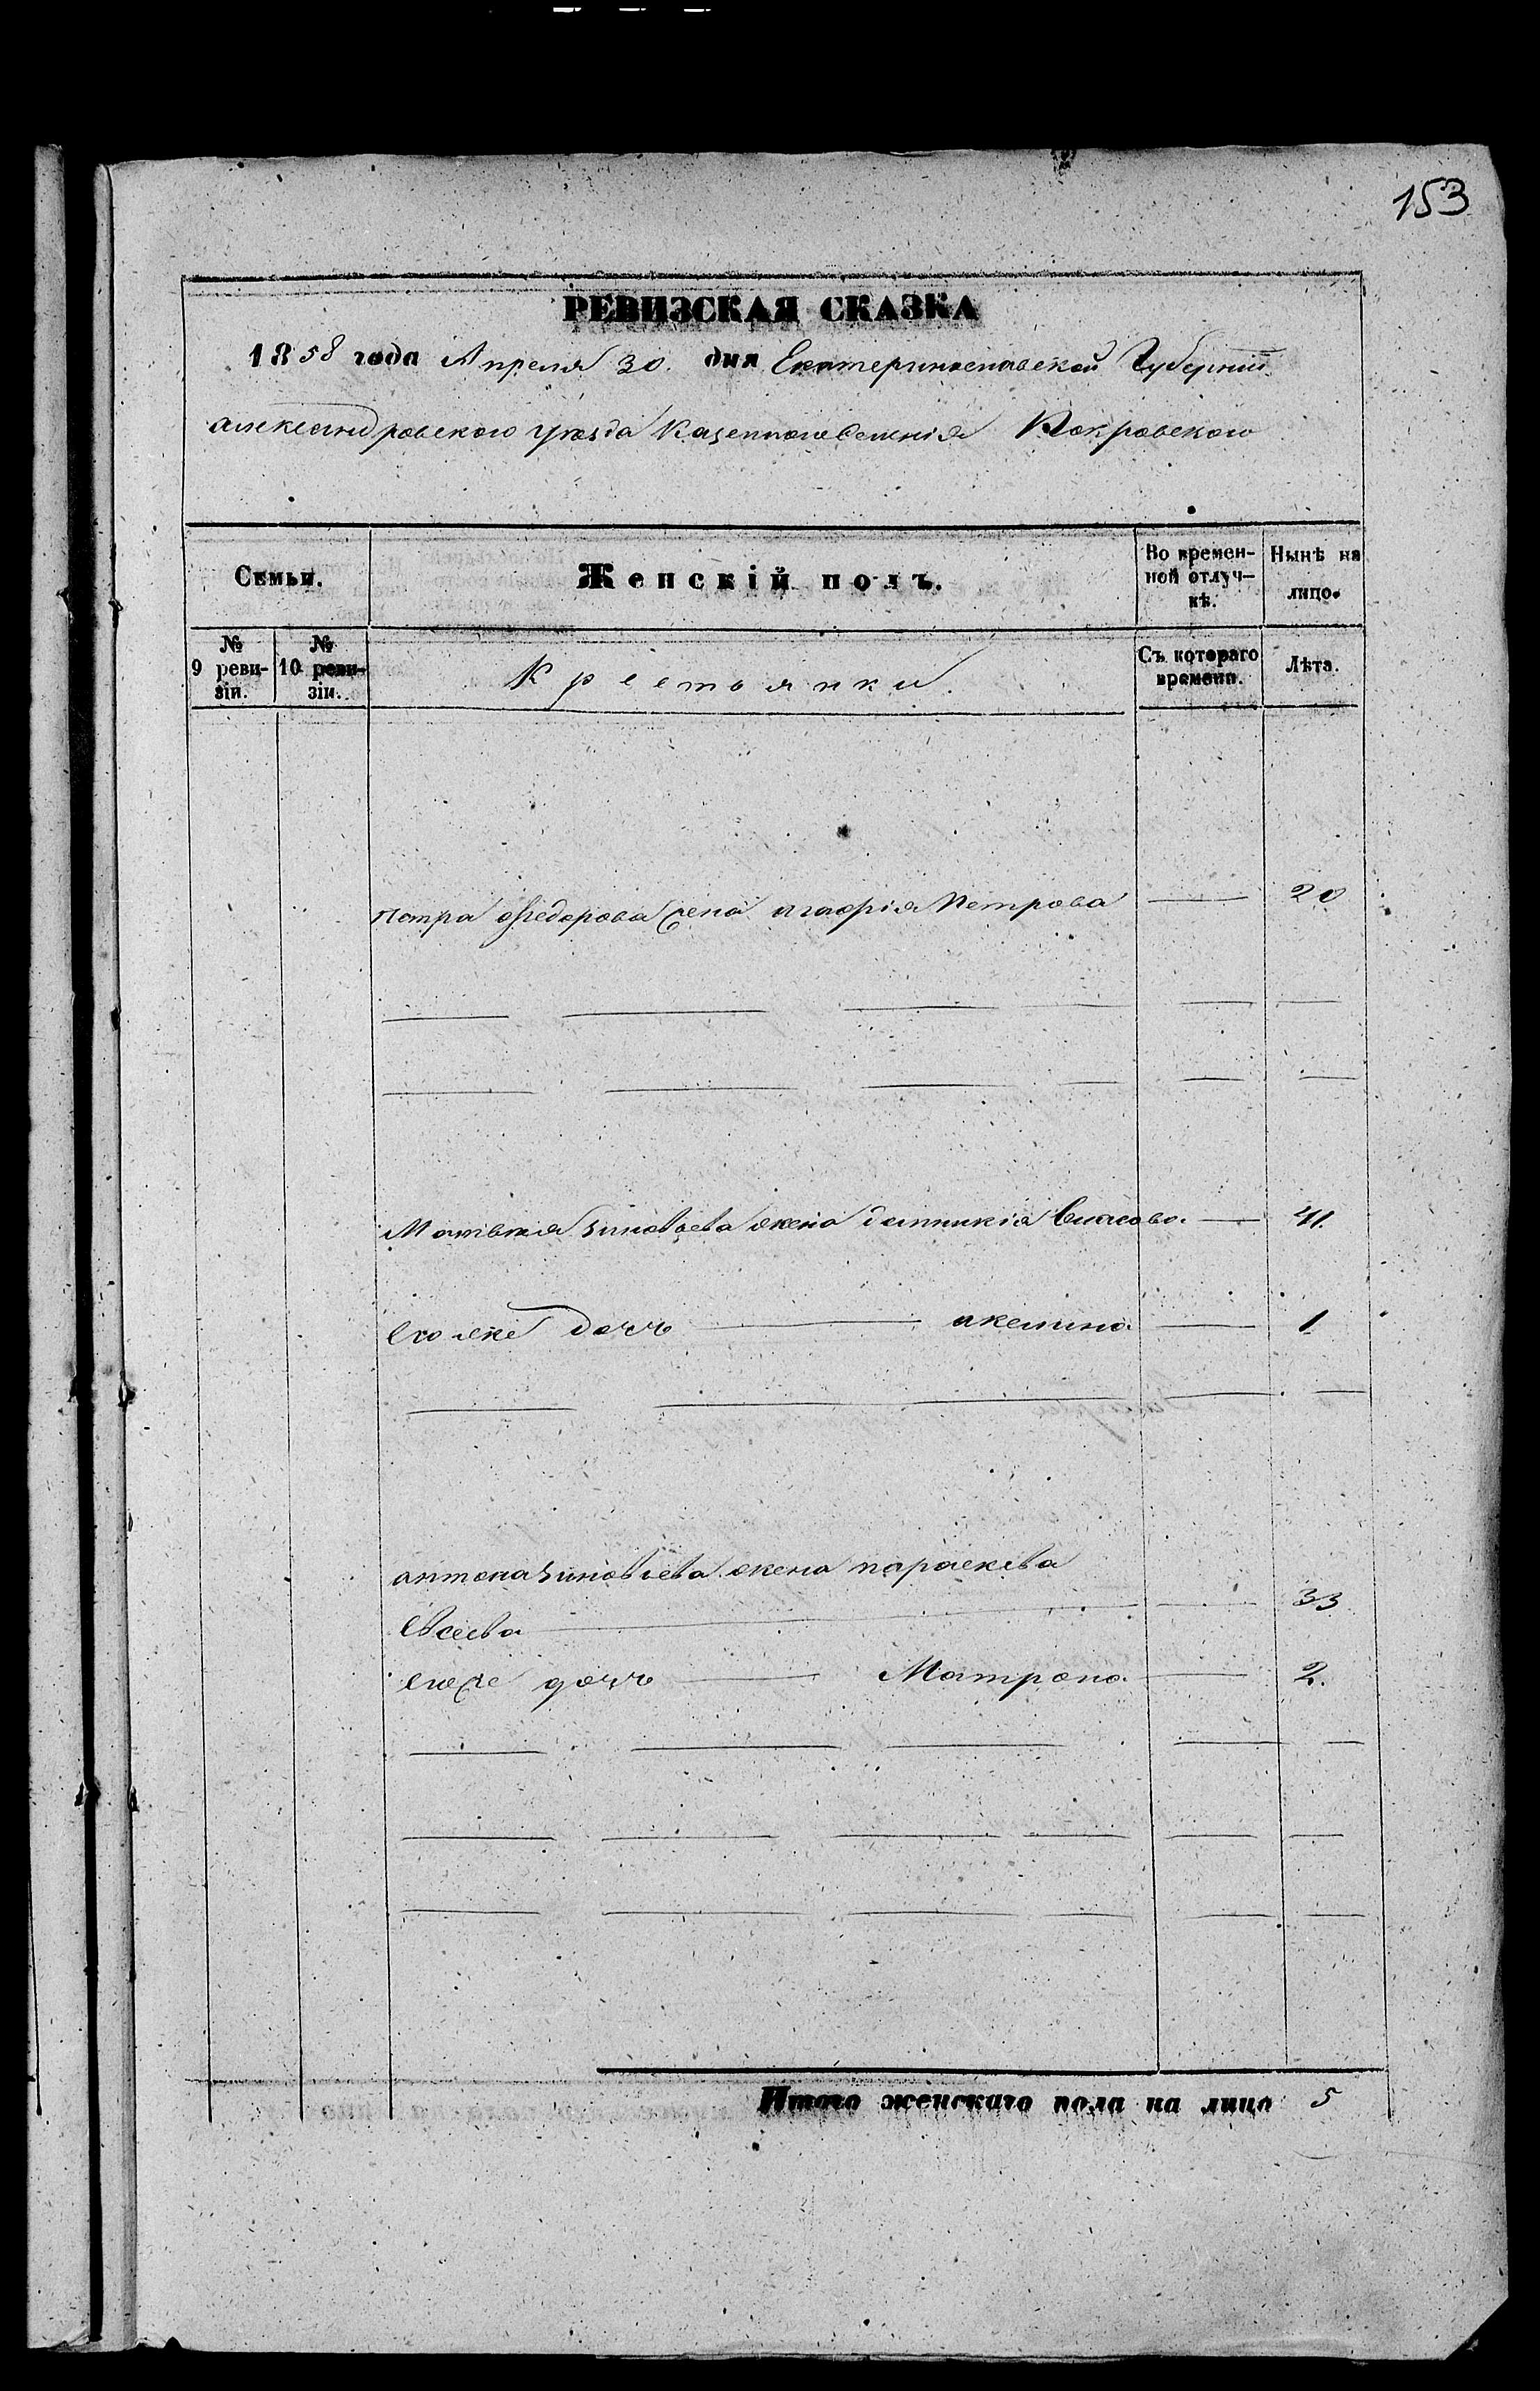 153
РЕВИЗСКАЯ СКАЗКА
1858 года Апреля 30. дня Екатеринославской Губерніи
александровского уѣзда Казенного Селенія Покровского
Семьи.
Женскій полъ.
Во времен-
ной отлуч-
кѣ.
Нынѣ на
лицо.
№
9 реви-
зіи.
№
10 реви-
зіи.
Крестьянки.
Съ котораго
времени.
Лѣта.
Петра Федорова жена агафія Петрова — 20
Матвѣя Зиновьева жена домникія Власова. — 41.
его же дочь — акелина — 1
антона Зиновьева жена параскева
Евсеева — 33
его же дочь — Матрона — 2.
Итого женскаго пола на лицо 5